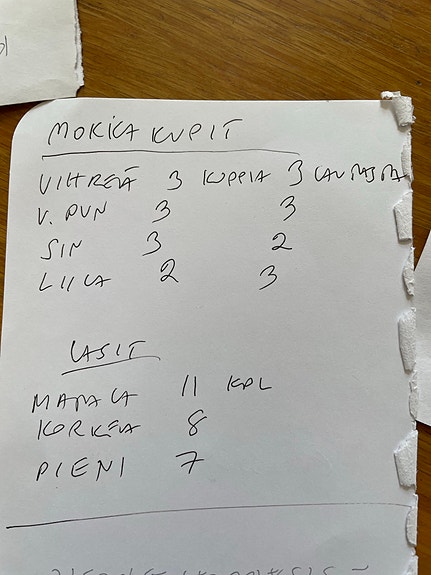 MOKKAKUPIT
VIHREÄÄ 3 KUPPIA 3 LAUTASTA
V. PUN 3 3
SIN 3 2
LIILA 2 3
LASIT
MATALA 11 KPL
KORKEA 8
PIENI 7